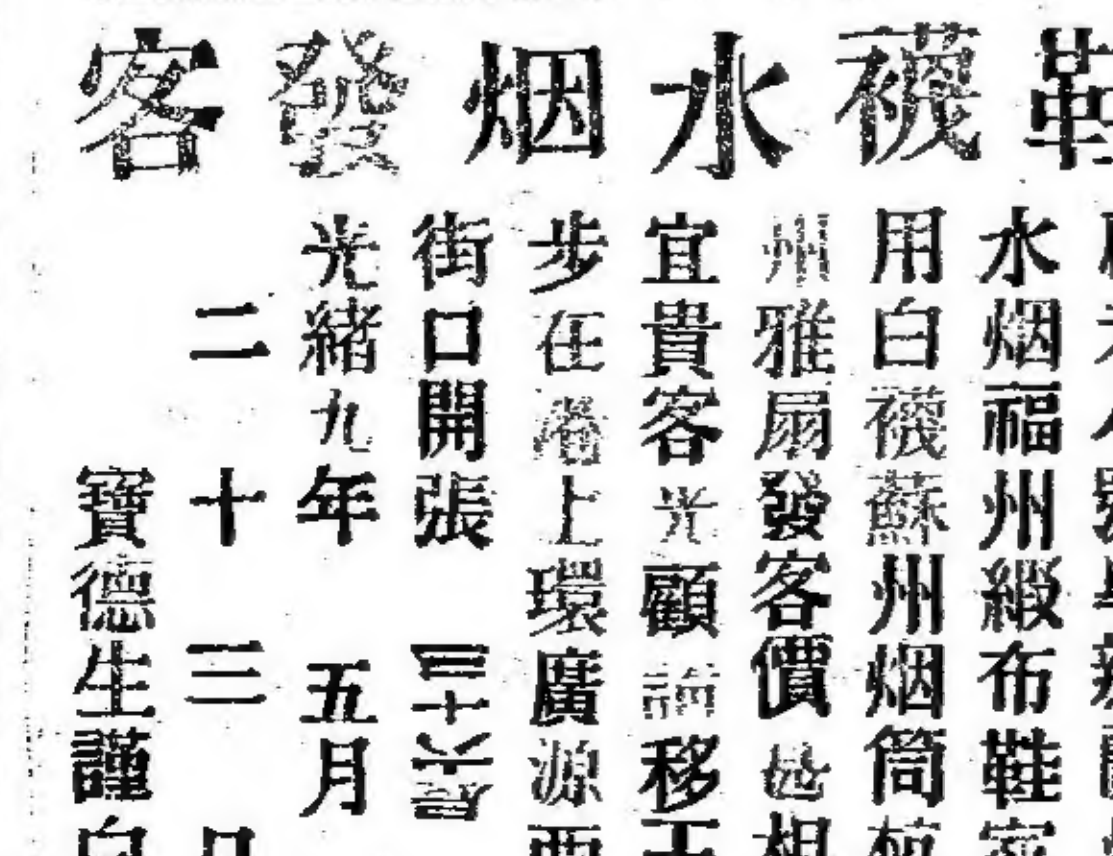 鞋襪水烟發客
水烟福州緞布鞋
用白襪蘇州烟筒
州雅扇發客價甚相
宜貴客光顧請移玉
步在港上環廣源西
街口開張三十六号
光緒九年五月
二十三日
寶德生謹白